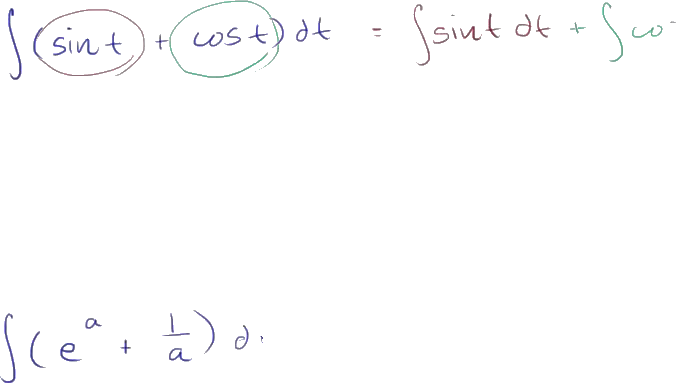 ∫(sin t + cos t) dt = ∫sin t dt + ∫co
∫(e^a + 1/a) d